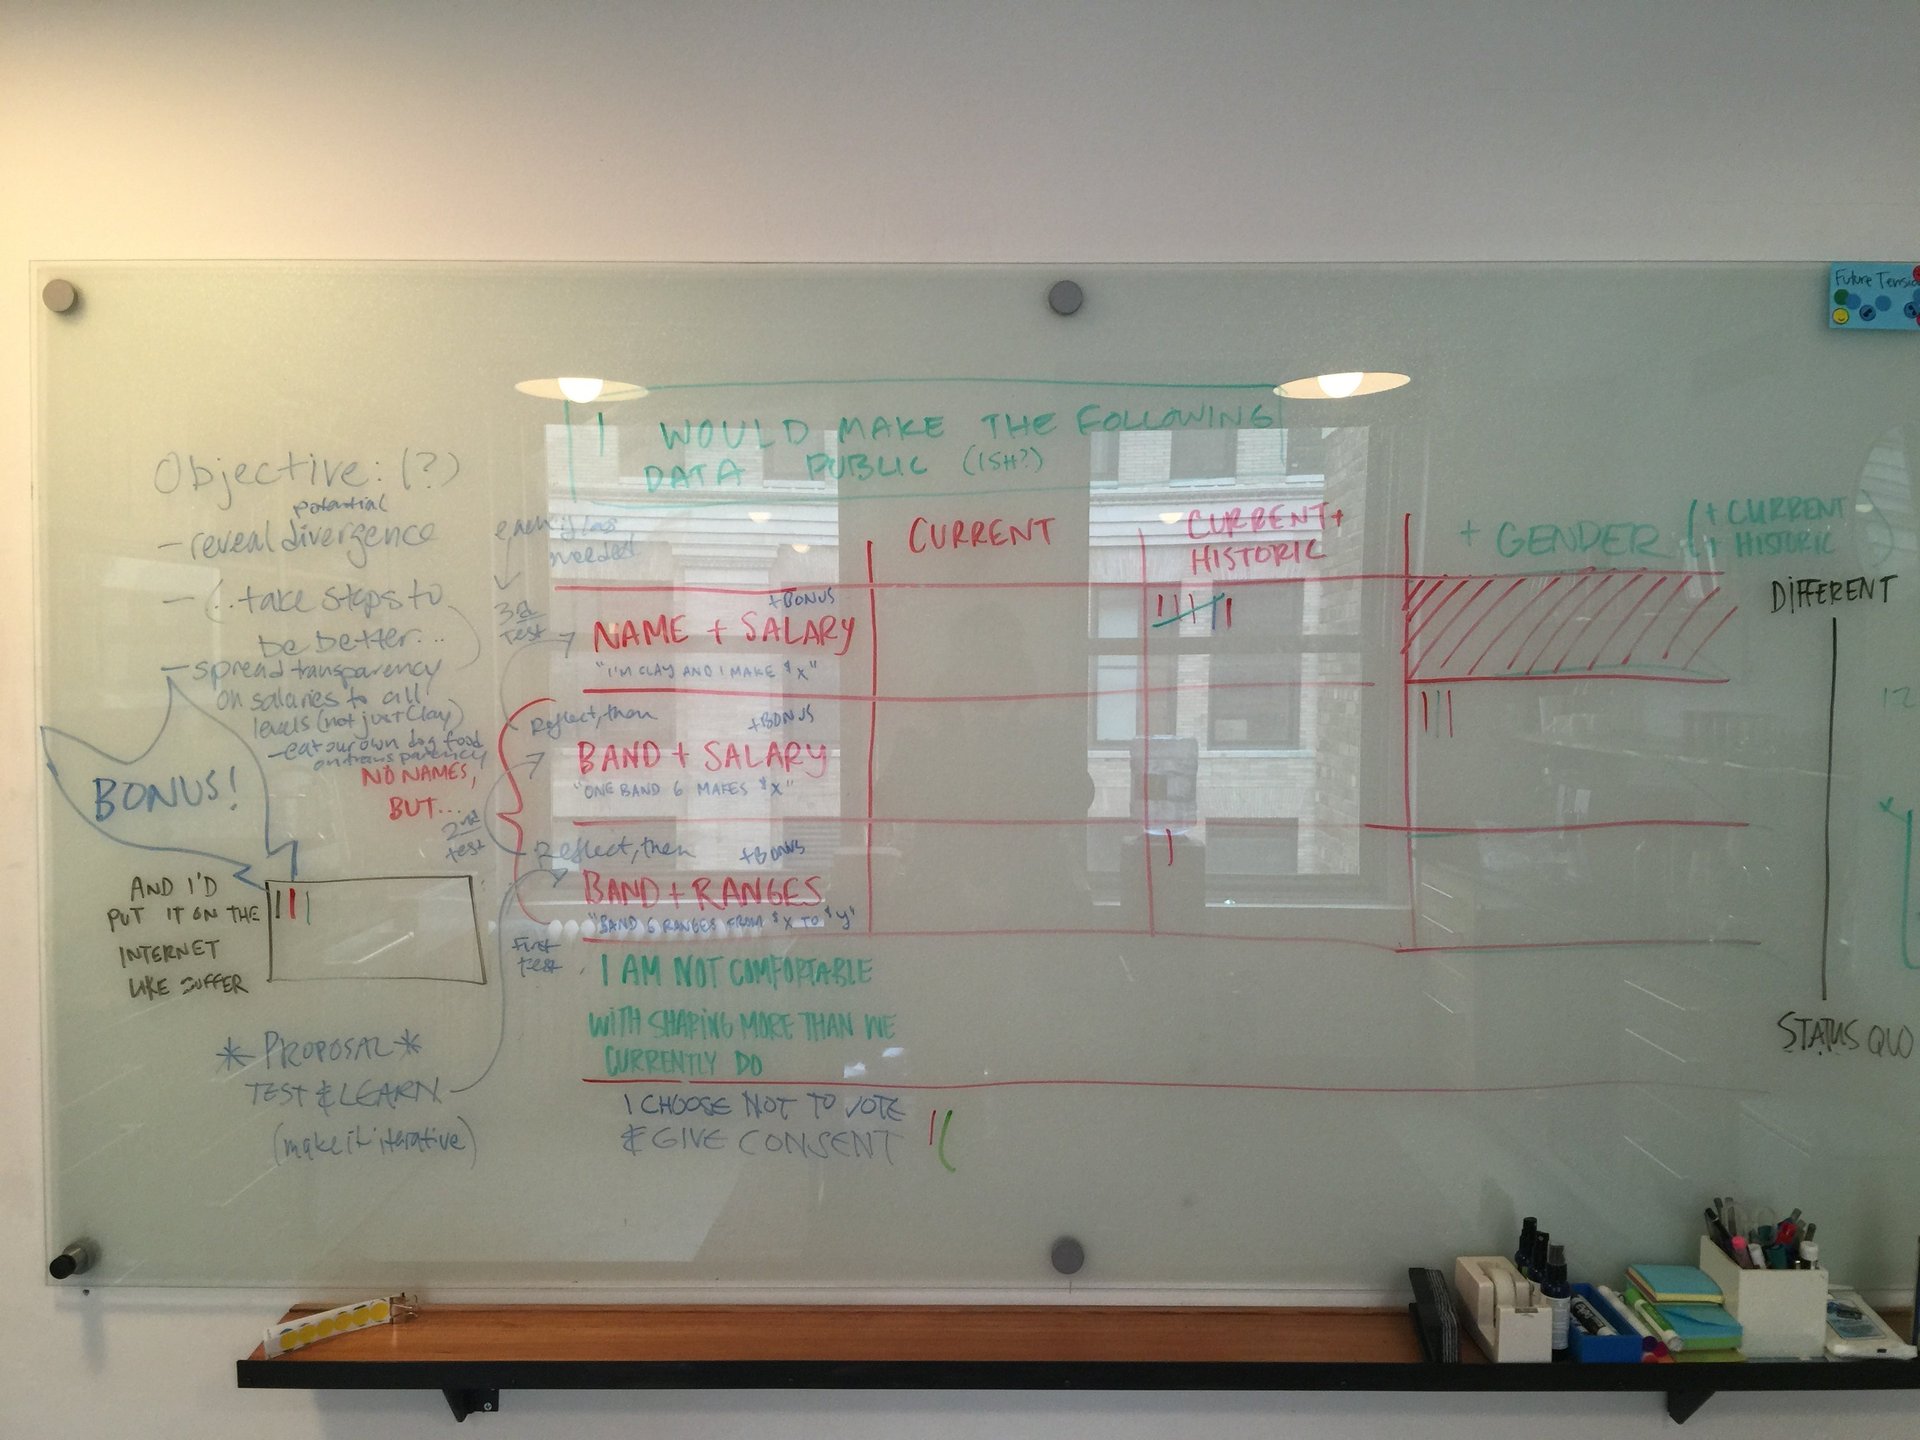 Future Tensio
I WOULD MAKE THE FOLLOWING
DATA PUBLIC (ISH?)
Objective: (?)
potential
- reveal divergence
- (..take steps to
be better...
- spread transparency
on salaries to all
levels (not just Clay)
- eat our own dog food
on transparency
NO NAMES,
BUT...
BONUS!
AND I'D
PUT IT ON THE
INTERNET
LIKE BUFFER
* PROPOSAL *
TEST & LEARN
(make it iterative)
needed
3rd
test
2nd
test
First
test
CURRENT
CURRENT +
HISTORIC
+ GENDER (+ CURRENT
+ HISTORIC)
+BONUS
NAME + SALARY
"I'M CLAY AND I MAKE $X"
Reflect, then
+BONUS
BAND + SALARY
"ONE BAND 6 MAKES $X"
Reflect, then
+BONUS
BAND + RANGES
"BAND 6 RANGES FROM $X TO $Y"
I AM NOT COMFORTABLE
WITH SHARING MORE THAN WE
CURRENTLY DO
I CHOOSE NOT TO VOTE
& GIVE CONSENT
DIFFERENT
STATUS QUO